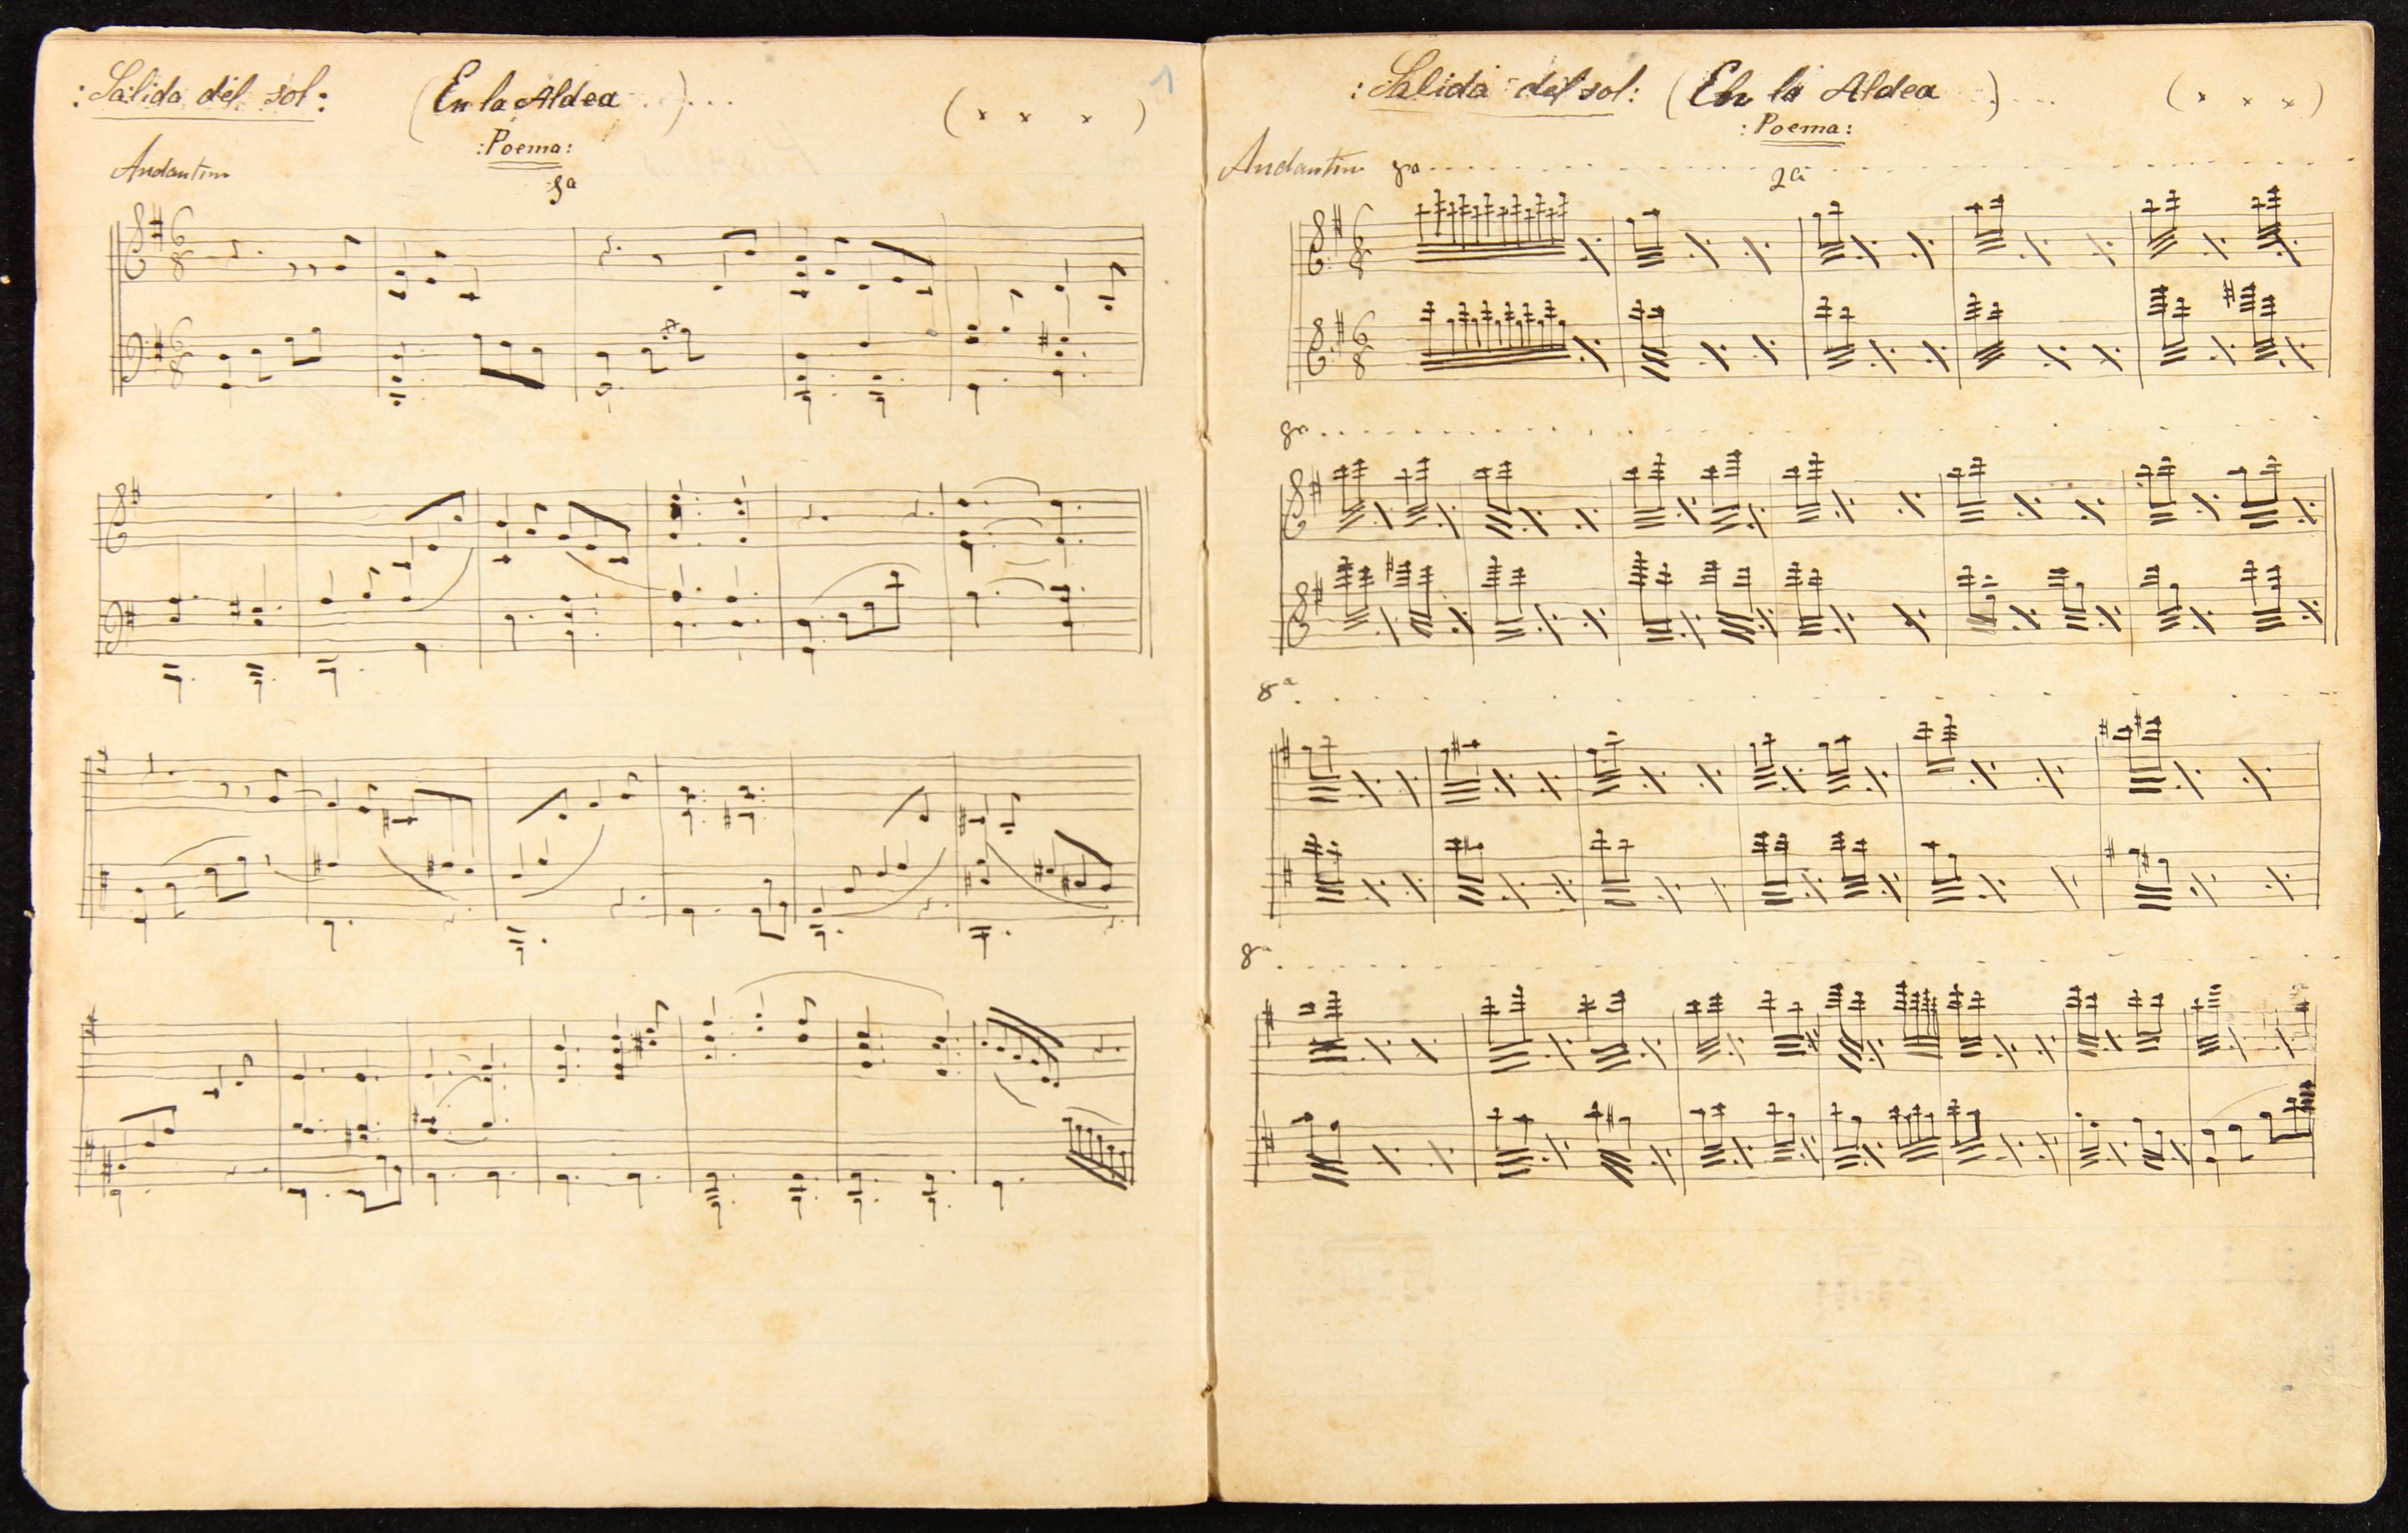 :Salida del sol: (En la Aldea . )... (x x x) 1
:Poema:
Andantino
Salida del sol: (En la Aldea . )... (x x x)
:Poema:
Andantino 8a
2a
8a
8a
8a